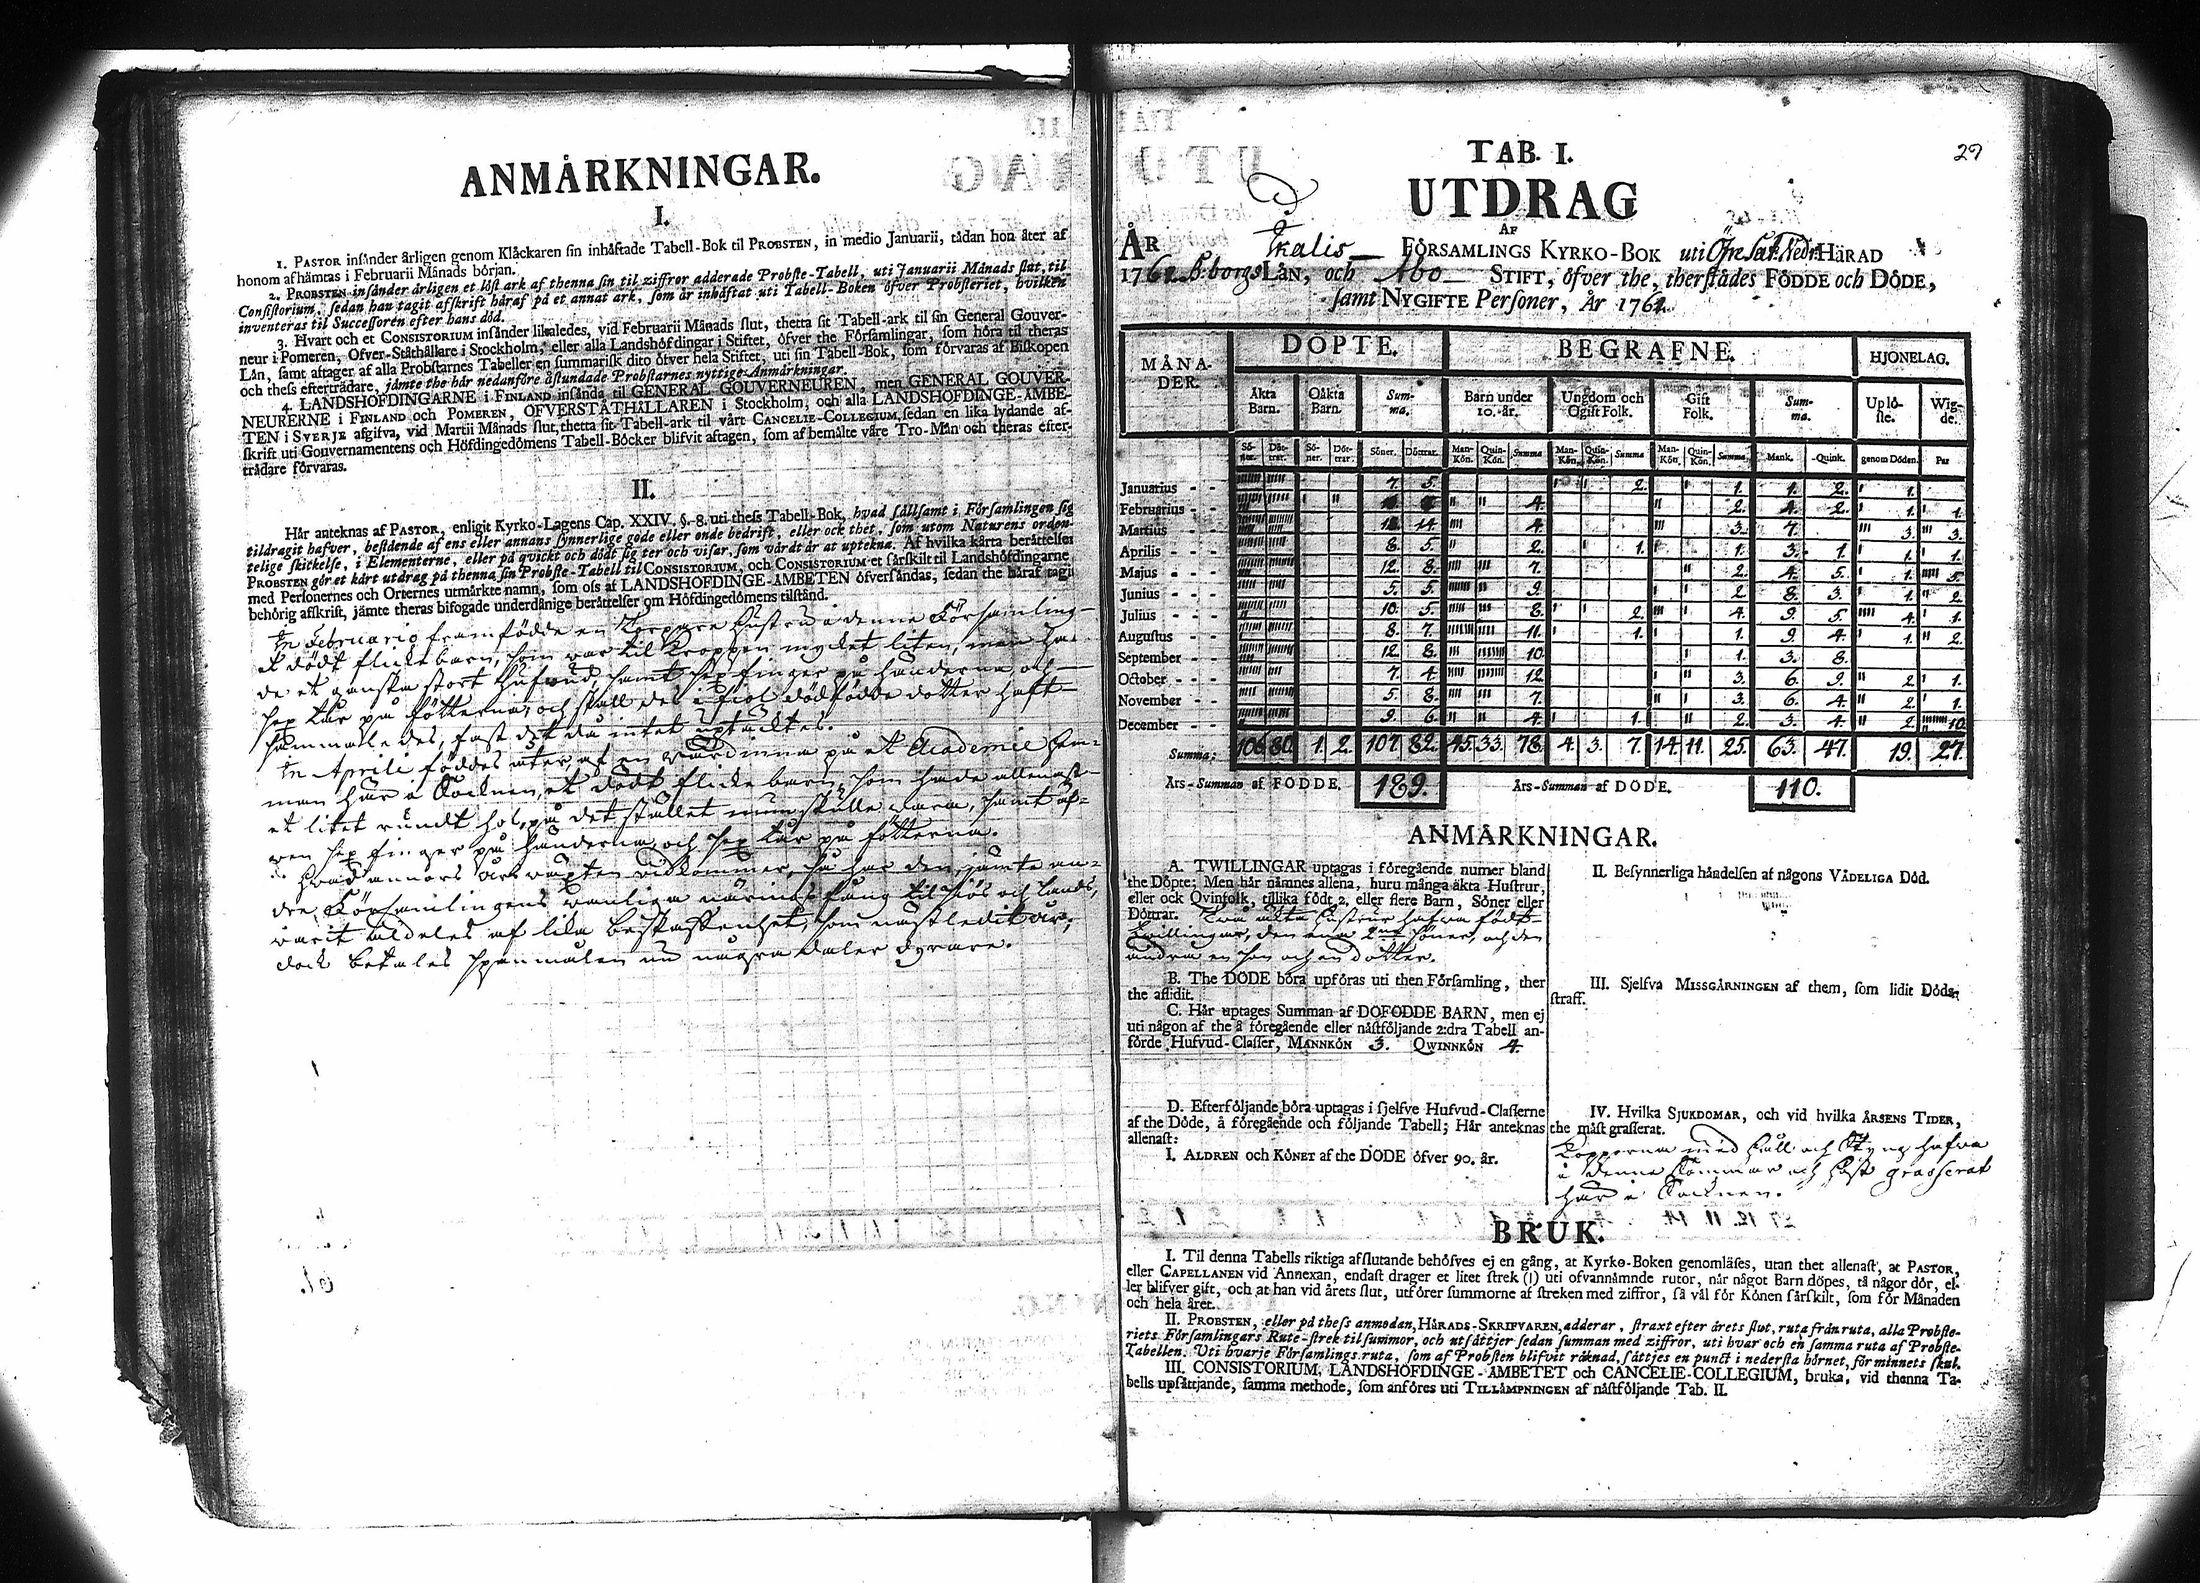 ANMÅRKNINGAR.
I.
1. PASTOR insånder årligen genom Klåckaren sin inhåftade Tabell-Bok til PROBSTEN, in medio Januarii, tådan hon åter af
honom afhåmtas i Februarii Månads början.
2. PROBSTEN insånder årligen et lôst ark af thenna sin til ziffror adderade Probste-Tabell, uti Januarii Månads slut, til
Consistorium, sedan han tagit afskrift håraf på et annat ark, som år inhåftat uti Tabell-Boken ôfver Probsteriet, hvilken
inventeras til Successoren efter hans dôd.
3. Hvart och et CONSISTORIUM insånder likaledes, vid Februarii Månads slut, thetta sit Tabell-ark til sin General Gouver-
neur i Pomeren, Ofver-Ståthållare i Stockholm, eller alla Landshôfdingar i Stiftet, ôfver the Fôrsamlingar, som hôra til theras
Lån, samt aftager af alla Probstarnes Tabeller en summarisk dito ôfver hela Stiftet, uti sin Tabell-Bok, som fôrvaras af Biskopen
och thess eftertrådare, jåmte the hår nedanfôre åstundade Probstarnes nyttige Anmårkningar.
4. LANDSHOFDINGARNE i FINLAND insånda til GENERAL GOUVERNEUREN, men GENERAL GOUVER-
NEURERNE i FINLAND och POMEREN, OFVERSTÅTHÅLLAREN i Stockholm, och alla LANDSHOFDINGE-ÅMBE-
TEN i SVERJE afgifva, vid Martii Månads slut, thetta sit Tabell-ark til vårt CANCELIE-COLLEGIUM, sedan en lika lydande af-
skrift uti Gouvernamentens och Hôfdingedômens Tabell-Bôcker blifvit aftagen, som af bemålte våre Tro-Mån och theras efter-
trådare fôrvaras.
II.
Hår anteknas af PASTOR, enligit Kyrko-Lagens Cap. XXIV. §. 8. uti thess Tabell-Bok, hvad sållsamt i Fôrsamlingen sig
tildragit hafver, bestående af ens eller annans synnerlige gode eller onde bedrift, eller ock thet, som utom Naturens orden-
telige skickelse, i Elementerne, eller på qvickt och dôdt sig ter och visar, som vårdt år at uptekna. Af hvilka kårta beråttelser
PROBSTEN gôr et kårt utdrag på thenna sin Probste-Tabell til CONSISTORIUM, och CONSISTORIUM et sårskilt til Landshôfdingarne
med Personernes och Orternes utmårkte namn, som oss af LANDSHOFDINGE-ÅMBETEN ôfversåndas, sedan the håraf tagit
behôrig afskrift, jåmte theras bifogade underdånige beråttelser om Hôfdingedômens tilstånd.
In Februario framfödde en Torpare Hustru i denne Församling
et dödt flickebarn, som war til kroppen mycket liten, men ha-
de et ganska stort hufwud samt sex finger på händerna och
sex tår på fötterna, och skall des i fiol dödfödde dotter haft
sammaledes, fast det då intet uptäcktes.
In Aprili föddes åter af en wärdinna på et Academie hem-
man här i Socknen, et dödt flicke barn, som hade allenast
et litet rundt hol, på det stället munnen skulle wara, samt äf-
wen sex finger på händerna och sex tår på fötterna.
Hwad annars årswäxten widkommer, så har den, jämte an-
dre Församlingens wanliga närings fång til siös och lands,
warit aldeles af lika beskaffenhet, som nästledit år,
dock betales spanmålen nu några daler dyrare.
27
TAB. I.
UTDRAG
AF
ÅR Ikalis FÔRSAMLINGS KYRKO-BOK uti Öfre Sat. Nedre HÄRAD
1762 B:borgs LÅN, och Åbo STIFT, ôfver the, therstådes FÔDDE och DÔDE,
samt NYGIFTE Personer, År 1762.
MÅNA-DER. DOPTE. BEGRAFNE. HJONELAG.
Åkta Barn. Oåkta Barn. Sum-ma. Barn under 10. år. Ungdom och Ogift Folk. Gift Folk. Sum-ma. Uplô-ste. Wig-de.
Sô-ner. Dôt-trar. Sô-ner. Dôt-trar. Sôner. Dôttrar. Man-Kôn. Quin-Kôn. Summa Man-Kôn. Quin-Kôn. Summa Man-Kôn. Quin-Kôn. Summa Mank. Quink. genom Dôden. Par
Januarius 7. 5. 2. 1. 1. 2. 1.
Februarius 4. 2. 4. 2. 1. 1.
Martius 14. 4. 3. 7. 3. 3.
Aprilis 8. 5. 2. 1. 1. 3. 1. 1. 1.
Majus 12. 8. 7. 2. 4. 5. 1. 5.
Junius 5. 5. 9. 2. 8. 3. 1. 2.
Julius 10. 5. 8. 2. 4. 9. 5. 4. 1.
Augustus 8. 7. 11. 1. 1. 9. 4. 1. 2.
September 12. 8. 10. 1. 3. 8.
October 7. 4. 12. 3. 6. 9. 2. 1.
November 5. 8. 7. 3. 6. 4. 2. 1.
December 9. 6. 4. 1. 2. 3. 4. 2. 10.
Summa: 106. 80. 1. 2. 107. 82. 45. 33. 78. 4. 3. 7. 14. 11. 25. 63. 47. 19. 27.
Års-Summan af FODDE. 189. Års-Summan af DODE. 110.
ANMÅRKNINGAR.
A. TWILLINGAR uptagas i fôregående numer bland
the Dôpte; Men hår nåmnes allena, huru många åkta Hustrur,
eller ock Qvinfolk, tillika fôdt 2. eller flere Barn, Sôner eller
Dôttrar. Två äkta Hustrur hafwa födt
twillingar, den ena 2ne söner, och den
andra en son och en dotter.
B. The DODE bôra upfôras uti then Fôrsamling, ther
the aflidit.
C. Hår uptages Summan af DÔFODDE BARN, men ej
uti någon af the å fôregående eller nåstfôljande 2:dra Tabell an-
fôrde Hufvud-Classer, MANNKÔN 3. QWINNKÔN 4.
D. Efterfôljande bôra uptagas i sjelfve Hufvud-Classerne
af the Dôde, å fôregående och fôljande Tabell; Hår anteknas
allenast:
I. ALDREN och KÔNET af the DODE ôfver 90. år.
II. Besynnerliga håndelsen af någons VÅDELIGA Dôd.
III. Sjelfva MISSGÅRNINGEN af them, som lidit Dôds-
straff.
IV. Hvilka SJUKDOMAR, och vid hvilka ÅRSENS TIDER,
the måst grasserat.
Kopporna med Håll och Styng hafwa
i denne Sommar och Höst grasserat
här i Socknen.
BRUK.
I. Til denna Tabells riktiga afslutande behôfves ej en gång, at Kyrko-Boken genomlåses, utan thet allenast, at PASTOR,
eller CAPELLANEN vid Annexan, endast drager et litet strek (I) uti ofvannåmnde rutor, når något Barn dôpes, tå någor dôr, el-
ler blifver gift, och at han vid årets slut, utfôrer summorne af streken med ziffror, så vål fôr Kônen sårskilt, som fôr Månaden
och hela året.
II. PROBSTEN, eller på thess anmodan, HÅRADS-SKRIFVAREN, adderar, straxt efter årets slut, ruta från ruta, alla Probste-
riets Fôrsamlingars Rute-strek til summor, och utsåttjer sedan summan med ziffror, uti hvar och en samma ruta af Probste-
Tabellen. Uti hvarje Fôrsamlings ruta, som af Probsten blifvit råknad, såttjes en punct i nedersta hôrnet, fôr minnets skul.
III. CONSISTORIUM, LANDSHOFDINGE-ÅMBETET och CANCELIE-COLLEGIUM, bruka, vid thenna Ta-
bells upsåttjande, samma methode, som anfôres uti TILLÅMPNINGEN af nåstfôljande Tab. II.